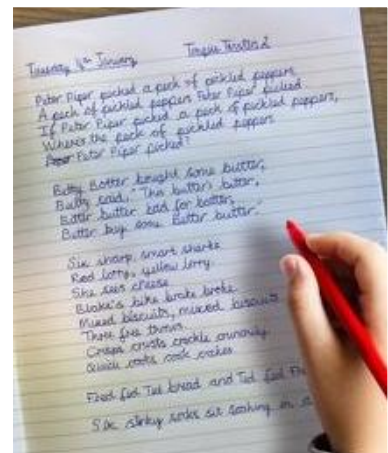 Tuesday 4th January Tongue Twisters 2
Peter Piper picked a peck of pickled peppers
A peck of pickled peppers Peter Piper picked
If Peter Piper picked a peck of pickled peppers,
Where's the peck of pickled peppers
Peter Piper picked?
Betty Botter bought some butter,
Betty said, "This butter's bitter,
Bitter butter bad for batter,
Better buy some better butter."
Six sharp smart sharks
Red lorry, yellow lorry
She sees cheese
Blake's bike brake broke
Mixed biscuits, mixed biscuits
Three free throws
Crisps crusts crackle crunchily
Quick cooks cook cakes
Fred fed Ted bread and Ted fed
Six stinky socks sit soaking in